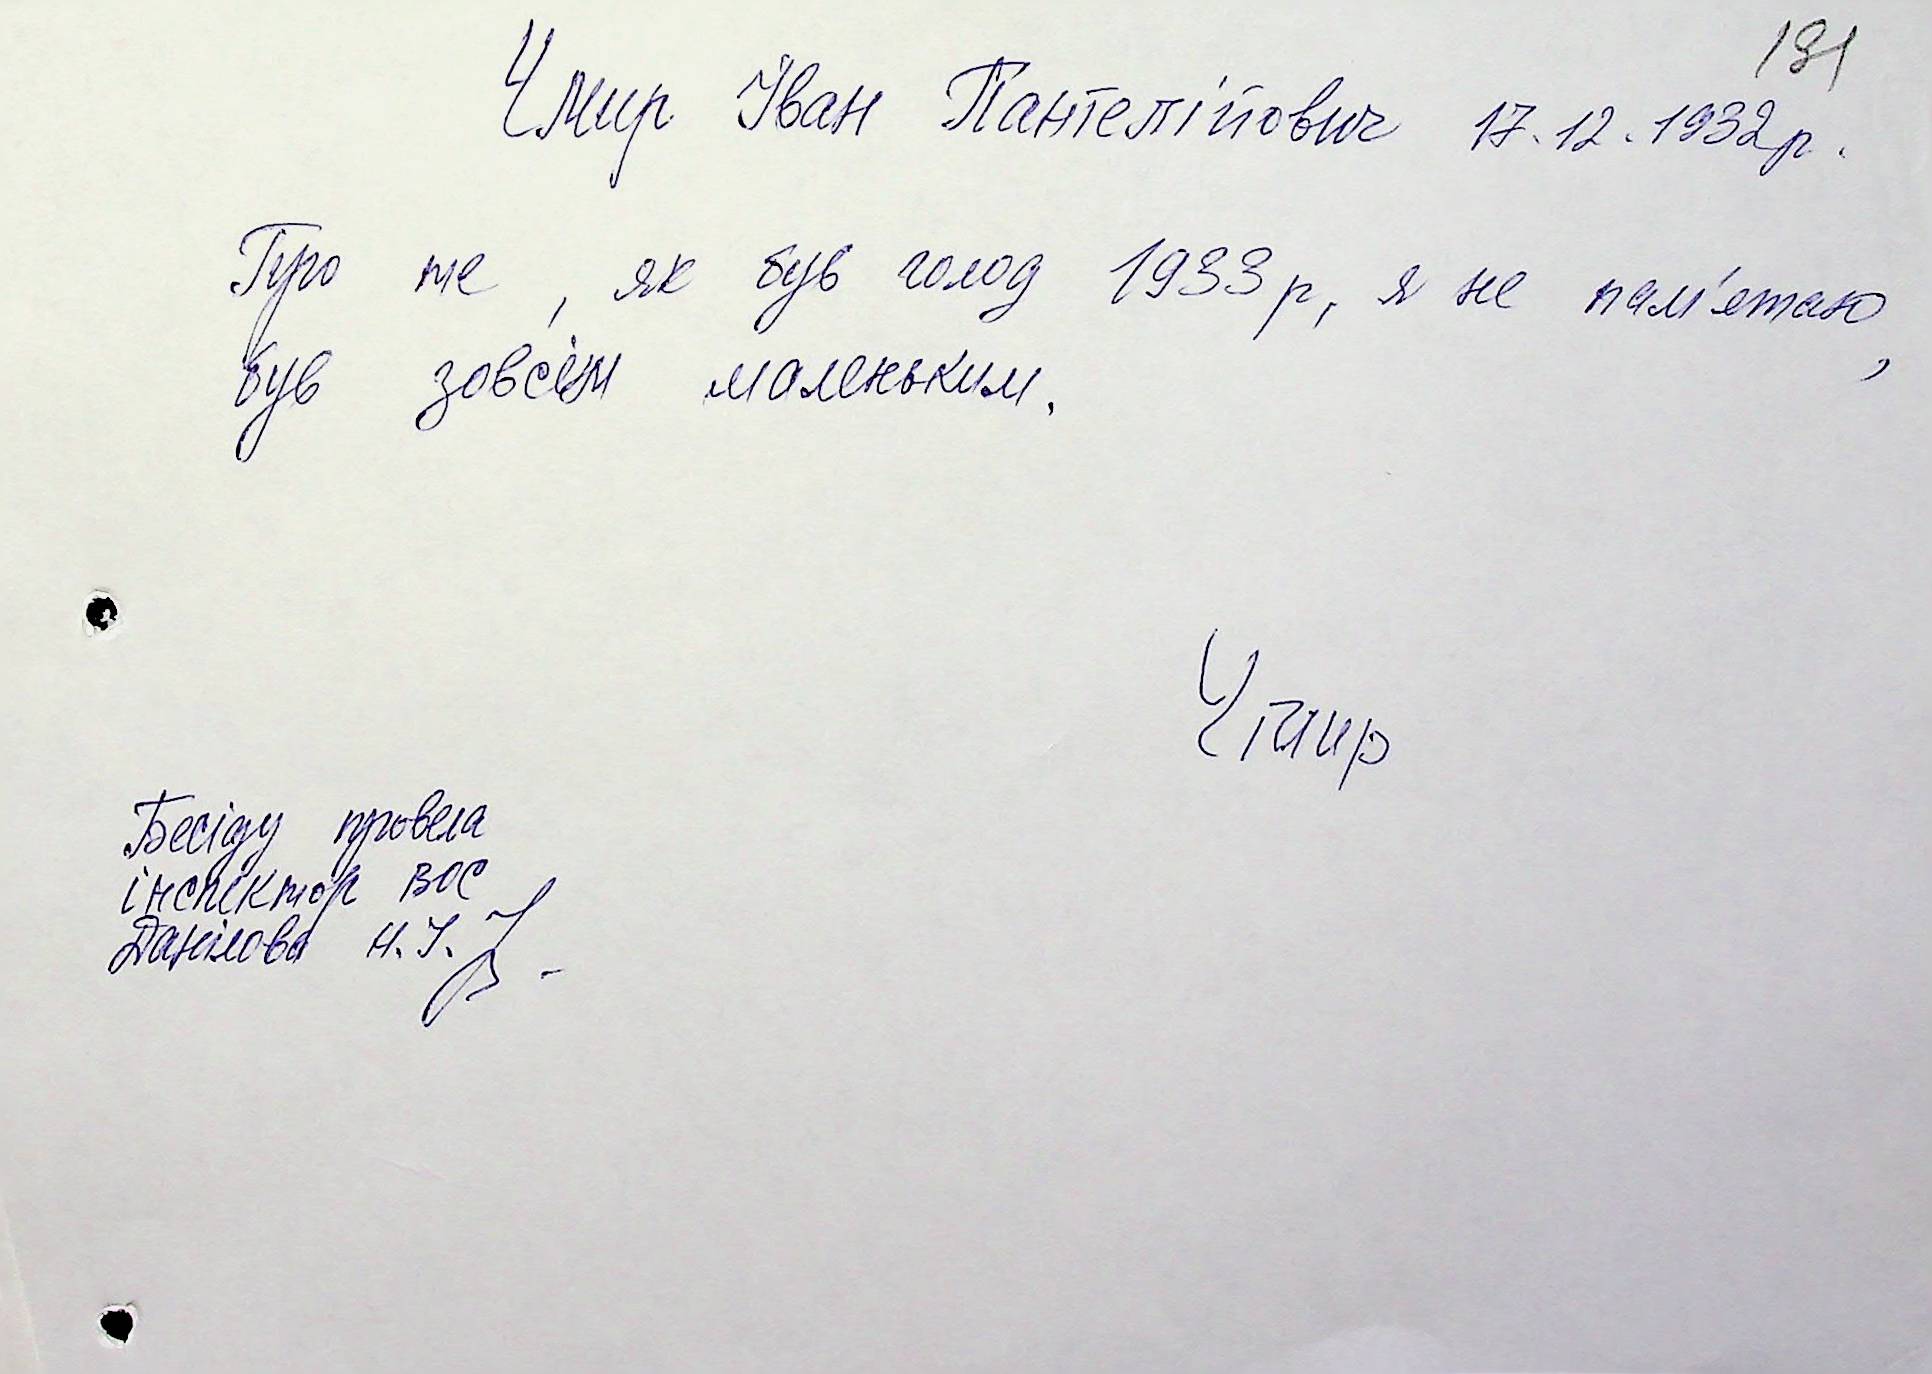 181
Чмир Іван Пантелійович 17.12.1932р.
Про те, як був голод 1933р, я не пам'ятаю,
був зовсім маленьким.
Чмир
Бесіду провела
інспектор ВОС
Данілова Н.І.